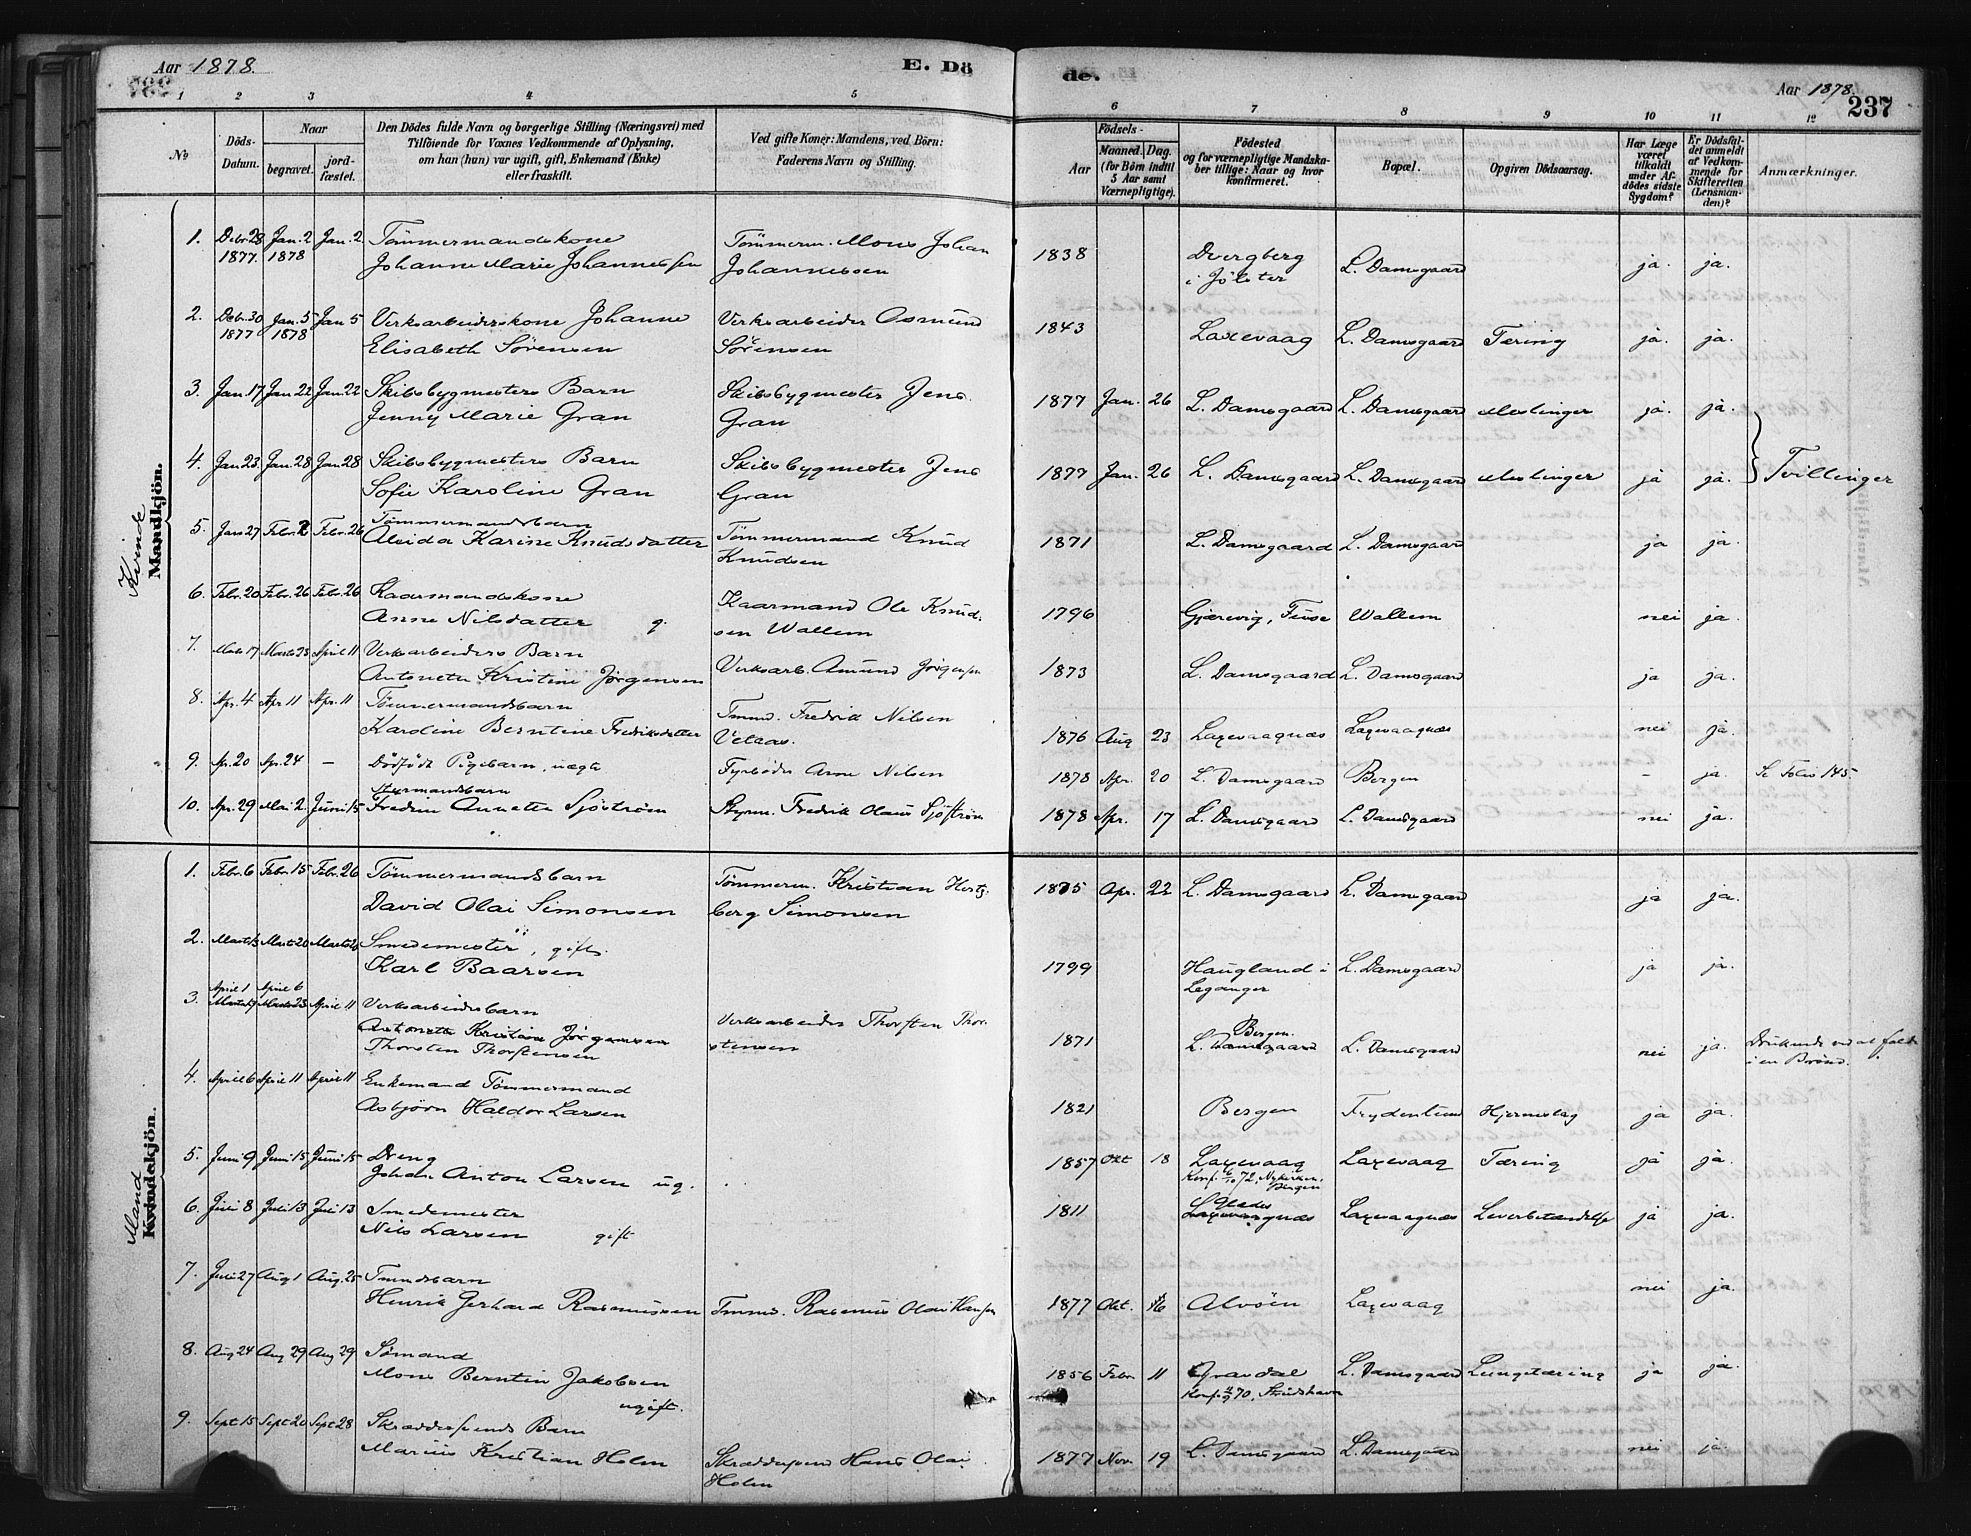 Aar 1878. E. Dö de. Aar 1878. 237
1 2 3 4 5 6 7 8 9 10 11 12
No Döds-Datum. Naar begravet. jord-fæstet. Den Dödes fulde Navn og borgerlige Stilling (Næringsvei) med Tilföiende for Voxnes Vedkommende af Oplysning, om han (hun) var ugift, gift, Enkemand (Enke) eller fraskilt. Ved gifte Koner: Mandens, ved Börn: Faderens Navn og Stilling. Födsels- Aar Maaned. Dag. (for Börn indtil 5 Aar samt Værnepligtige). Födested og for værnepligtige Mandskaber tillige: Naar og hvor konfirmeret. Bopæl. Opgiven Dödsaarsag. Har Læge været tilkaldt under Afdödes sidste Sygdom? Er Dödsfaldet anmeldt af Vedkommende for Skifteretten (Lensmanden)? Anmærkninger.
Kvinde
Mandkjön.
1. Debr. 28 1877. Jan. 2 1878 Jan. 2 Tömmermandskone Tömmerm. Mons Johan 1838 Dvergberg L. Damsgaard ja. ja.
Johanne Marie Johannessen Johannessen i Jölster
2. Debr. 30 1877 Jan. 5 1878 Jan 5 Verksarbeiderskone Johanne Verksarbeider Osmund 1843 Laxevaag L. Damsgaard Tæring ja. ja.
Elisabeth Sörensen Sörensen
3. Jan. 17 Jan 22 Jan. 22 Skibsbygmesters Barn Skibsbygmester Jens 1877 Jan. 26 L. Damsgaard L. Damsgaard Meslinger ja. ja.
Jenny Marie Gran Gran
4. Jan 23. Jan. 28 Jan 28 Skibsbygmesters Barn Skibsbygmester Jens 1877 Jan. 26 L. Damsgaard L. Damsgaard Meslinger ja ja. } Tvillinger
Sofie Karoline Gran Gran
5. Jan 27 Febr. 2 Febr. 26 Tömmermandsbarn
Alvida Karine Knudsdatter Tömmermand Knud Knudsen 1871 L. Damsgaard L. Damsgaard ja ja.
6. Febr. 20 Febr. 26 Febr. 26 Kaarmandskone Kaarmand Ole Knud- 1796 Gjærevig, Fuse Wallem nei ja.
Anne Nilsdatter g. sen Wallem
7. Marts 17 Marts 23 April 11 Verksarbeiders Barn Verksarb. Amund Jörgensen 1873 L. Damsgaard L. Damsgaard ja ja.
Antonette Kristine Jörgensen
8. Apr. 4 Apr 11 Apr. 11 Tömmermandsbarn Tmmd. Fredrik Nilsen 1876 Aug 23 Laxevaagnæs Laxevaagnæs nei ja.
Karoline Berntine Fredriksdatter
9. Ap. 20 Apr. 24 — Dödfödt Pigebarn, uægte Fyrböder Arne Nilsen 1878 Apr. 20 L. Damsgaard Bergen - ja. Se Folio 145
Styrmandsbarn
10. Apr. 29 Mai 2. Juni 15 Annette Sjöström Styrm. Fredrik Olaus Sjöström 1878 Apr. 17 L. Damsgaard L. Damsgaard nei ja.
Mand
Kvindekjön.
1. Febr. 6 Febr. 15 Febr. 26 Tömmermandsbarn Tömmerm. Kristian Hertz- 1875 Apr. 22 L. Damsgaard L. Damsgaard ja ja.
David Olai Simonsen berg Simonsen
2. Marts 20 Smedemester, gift. 1799 Haugland i L. Damsgaard ja ja.
Karl Baarsen Leganger
3. April 1 April 6 April 11 Verksarbeidsbarn Verksarbeider Thorsten Thor- 1871 Bergen. L. Damsgaard L. Damsgaard nei ja. ved at falde
Antonette Kristine Jörgensen stensen i en Brönd.
Thorsten Thorstensen
4. April 6 April 11 April 11 Enkemand Tömmermand 1821 Bergen Frydenlund Hjerneslag ja ja.
Asbjörn Haldor Larsen
5. Juni 9 Juni 15 Juni 15 Dreng 1857 Okt 18 Laxevaag Laxevaag Tæring ja ja.
Johan Anton Larsen ug. Konf. 72, Nykirken, Bergen
6. Juli 8 Juli 13 Juli 13 Smedemester 1811 Laxevaagnæs Laxevaagnæs Leverbetændelse ja ja.
Nils Larsen gift
7. Juli 27 Aug 1 Aug. 25 Tmmdsbarn 1877 Okt. Alvöen Laxevaag nei ja.
Henrik Gerhard Rasmussen Tmmd. Rasmus Olai Hansen
8. Aug 24 Aug 29 Aug 29 Sömand 1856 Febr 11 Gravdal L. Damsgaard Lungetæring ja ja.
Mons Berntin Jakobsen Konf. 70, Strudshavn
ugift.
9. Sept 15 Sept 20 Sept 28 Skræddersvends Barn 1877 Nov. 19 L. Damsgaard L. Damsgaard nei ja.
Marius Kristian Holm Skræddersvend Hans Olai
Holm